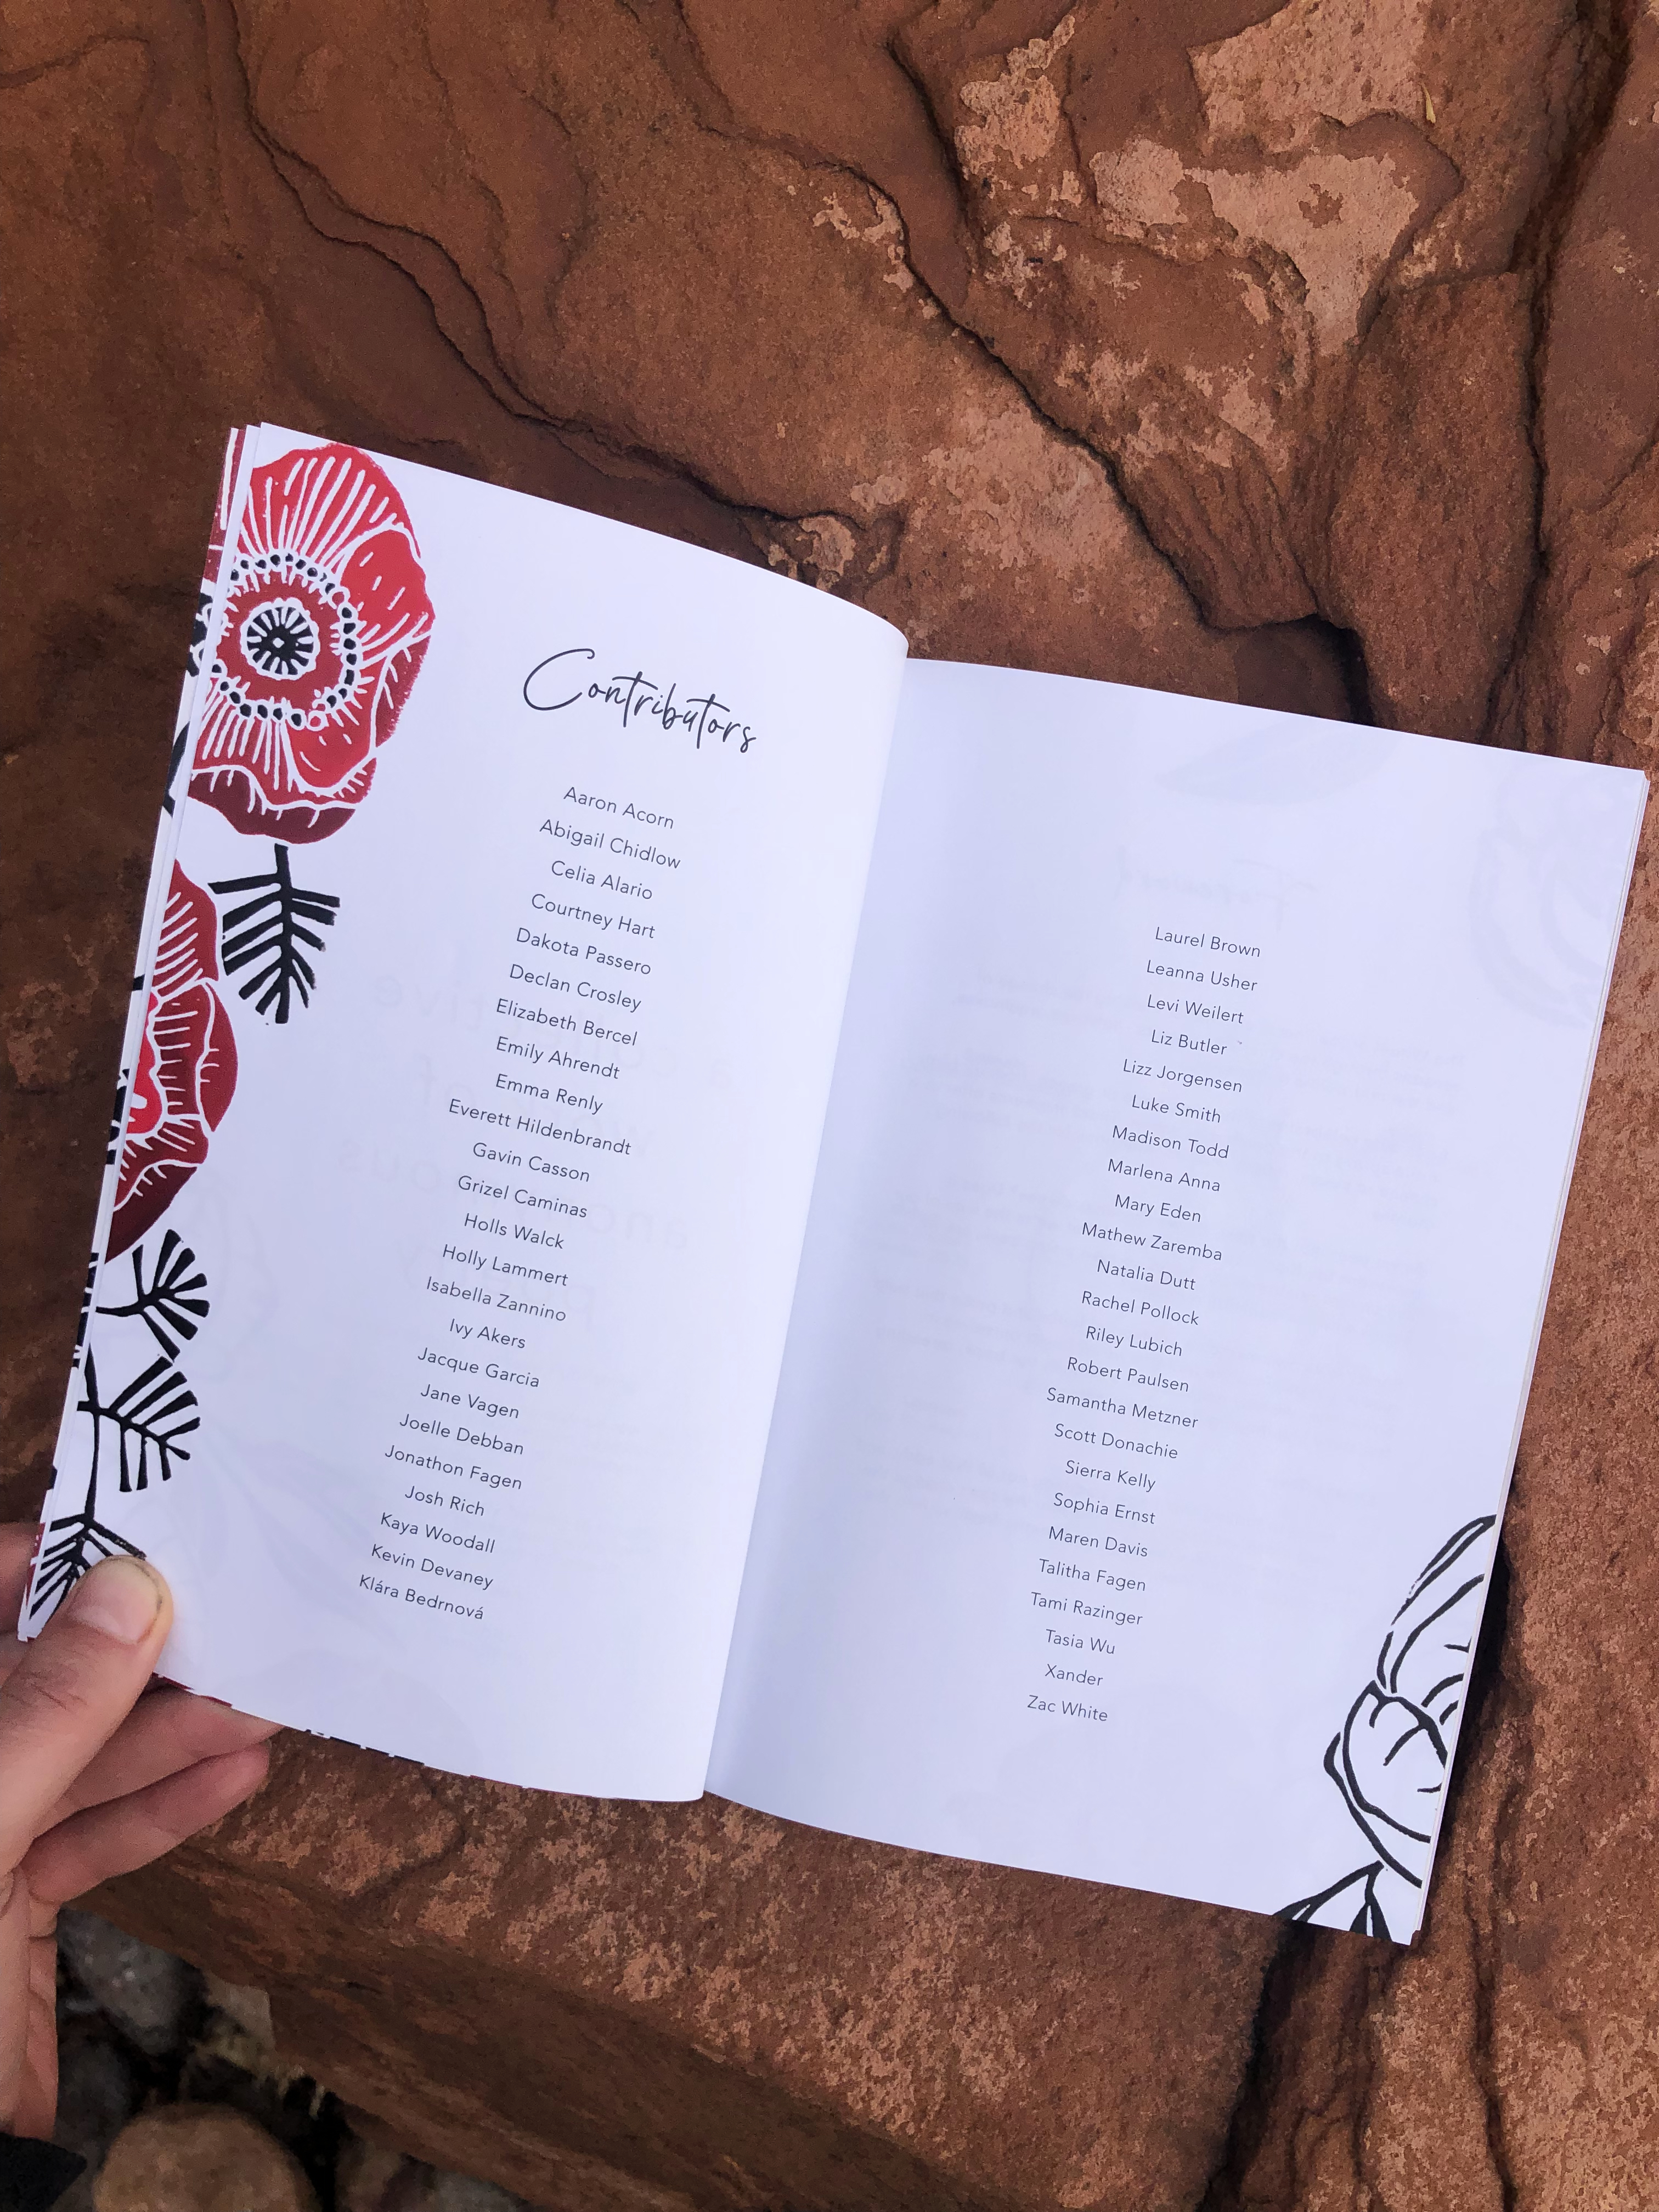 Contributors
Aaron Acorn
Abigail Chidlow
Celia Alario
Courtney Hart
Dakota Passero
Declan Crosley
Elizabeth Bercel
Emily Ahrendt
Emma Renly
Everett Hildenbrandt
Gavin Casson
Grizel Caminas
Holls Walck
Holly Lammert
Isabella Zannino
Ivy Akers
Jacque Garcia
Jane Vagen
Joelle Debban
Jonathon Fagen
Josh Rich
Kaya Woodall
Kevin Devaney
Klára Bedrnová
Laurel Brown
Leanna Usher
Levi Weilert
Liz Butler
Lizz Jorgensen
Luke Smith
Madison Todd
Marlena Anna
Mary Eden
Mathew Zaremba
Natalia Dutt
Rachel Pollock
Riley Lubich
Robert Paulsen
Samantha Metzner
Scott Donachie
Sierra Kelly
Sophia Ernst
Maren Davis
Talitha Fagen
Tami Razinger
Tasia Wu
Xander
Zac White